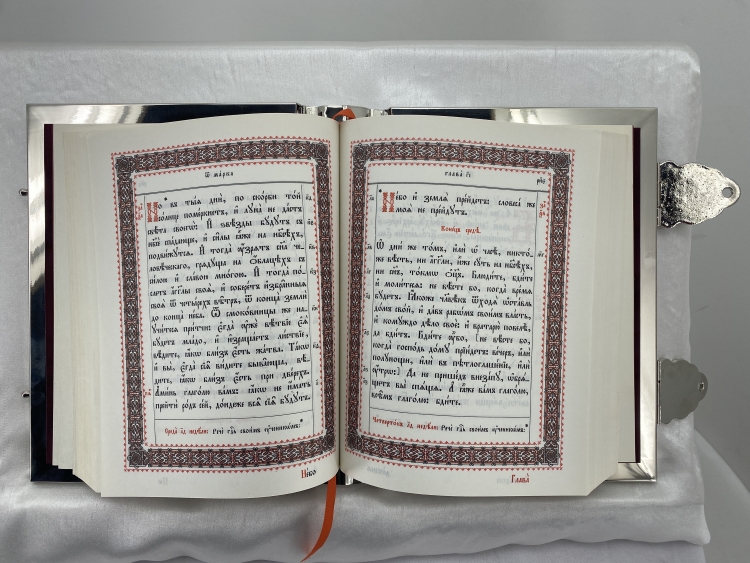 Ѿ ма́рка
Но̀ въ ты̑ѧ дни̑, по ско́рби то́й
со́лнце поме́ркнетъ, и҆ лꙋна̀ не да́стъ
свѣ́та своегѡ̀. И҆ ѕвѣ́зды бꙋ́дꙋтъ съ
нб҃сѐ спа́дающе, и҆ си̑лы ꙗ҆̀же на нб҃сѣ́хъ,
подви́жꙋтсѧ. И҆ тогда̀ ᲂу҆́зрѧтъ сн҃а че-
ловѣ́ческаго, грѧдꙋ́ща на ѡ҆́блацѣхъ съ
си́лою и҆ сла́вою мно́гою. И҆ тогда̀ по́-
слетъ а҆́гг҃лы своѧ̑, и҆ собере́тъ и҆збра̑нныѧ
своѧ̑ ѿ четы́рехъ вѣ̑тръ, ѿ конца̀ землѝ
до конца̀ не́ба. Ѿ смоко́вницы же на-
ꙋчи́тесѧ при́тчи: є҆гда̀ ᲂу҆жѐ вѣ́твїе є҆ѧ̀
бꙋ́детъ мла́до, и҆ и҆зраща́етъ ли́ствїе,
вѣ́дите, ꙗ҆́кѡ бли́з̾ є҆́сть жа́тва. Та́кѡ
и҆ вы̀, є҆гда̀ сїѧ̑ ви́дите быва̑юща, вѣ́-
дите, ꙗ҆́кѡ бли́з̾ є҆́сть при две́рехъ.
А҆ми́нь гл҃го́лю ва́мъ: ꙗ҆́кѡ не и҆́мать
прейтѝ ро́дъ се́й, до́ндеже всѧ̑ сїѧ̑ бꙋ́дꙋтъ.
Среда̀ л҃д недѣ́ли: Речѐ гд҇ь свои̑мъ ᲂу҆чн҃кѡ́мъ:
Не́бо
глава̀ г҃і
Не́бо и҆ землѧ̀ пре́йдетъ: словеса̀ же
моѧ̑ не пре́йдꙋтъ.
Коне́цъ средѣ̀.
Ѡ҆ дни́ же то́мъ, и҆лѝ ѡ҆ часѣ̀, никто́-
же вѣ́сть, ни а҆́гг҃ли, и҆̀же сꙋ́ть на нб҃сѣ́хъ,
ни сн҃ъ, то́кмѡ ѻ҆ц҃ъ. Блюди́те, бди́те
и҆ моли́тесѧ: не вѣ́сте бо, когда̀ вре́мѧ
бꙋ́детъ. Ꙗ҆́коже чл҃вѣ́къ ѿходѧ̀ ѡ҆ста́вль
до́мъ сво́й, и҆ да́въ рабѡ́мъ свои̑мъ вла́сть,
и҆ комꙋ́ждо дѣ́ло своѐ: и҆ врата́рю повелѣ̀,
да бди́тъ. Бди́те ᲂу҆̀бо: [не вѣ́сте бо,
когда̀ госпо́дь до́мꙋ прїи́детъ: ве́черъ, и҆лѝ
полꙋ́нощи, и҆лѝ въ пѣтлоглаше́нїе, и҆лѝ
ᲂу҆́трѡ:] Да не прише́дъ внеза́пꙋ, ѡ҆брѧ́-
щетъ вы̀ спѧ́щѧ. А҆ ꙗ҆̀же ва́мъ глаго́лю,
всѣ̑мъ глаго́лю: бди́те.
Четверто́къ л҃д недѣ́ли: Речѐ гд҇ь свои̑мъ ᲂу҆чн҃кѡ́мъ:
Глава̀